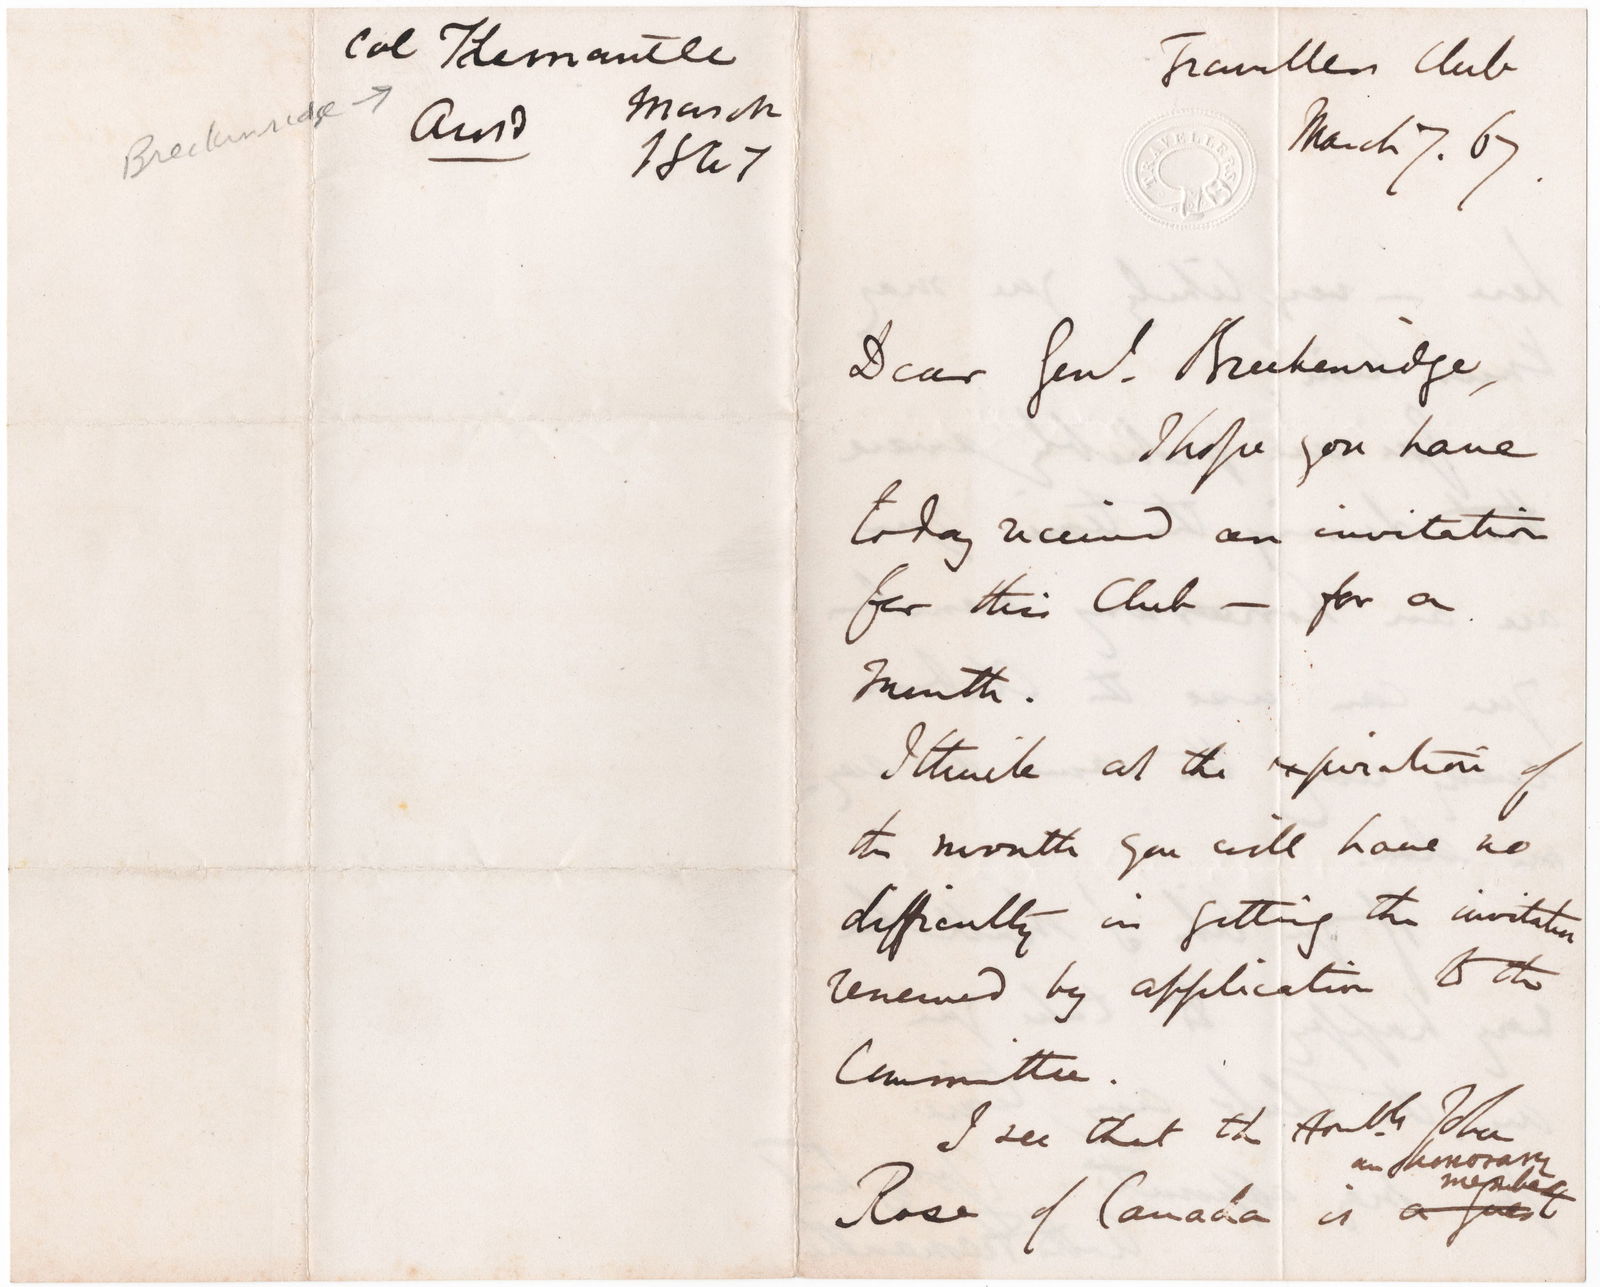 Col Flemantle
Breckenridge →
Answd
March
1867
Travellers Club
March 7. 67.
TRAVELLERS
Dear Genl. Breckenridge,
I hope you have
today received an invitation
for this Club — for a
month.
I think at the expiration of
the month you will have no
difficulty in getting the invitation
renewed by application to the
Committee.
I see that the Honble John
an honorary
member
Rose of Canada is a guest